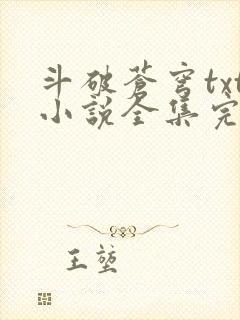 斗破苍穹txt
小说全集完
王堃